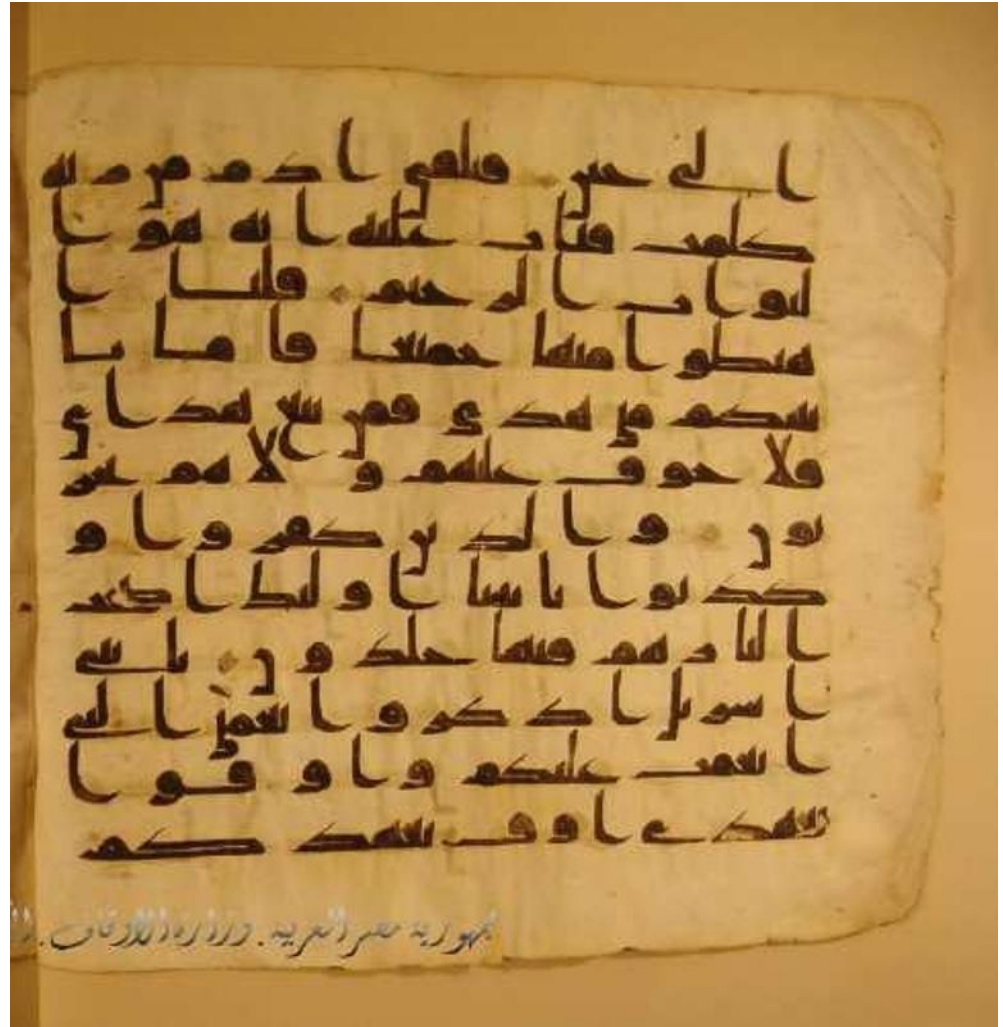 ا لى حين فتلقى ا د م من ر به
كلمت فتا ب عليه ا نه هو ا
لتو ا ب ا لر حيم قلنا ا
هبطو ا منها جميعا فا ما يا
تينكم مني هد ى فمن تبع هد ا ي
فلا خو ف عليهم و لا هم يحز
نو ن و ا لذ ين كفر و ا و
كذ بو ا با يتنا ا و لئك ا صحب
ا لنا ر هم فيها خلد و ن يا بني
ا سر يل ا ذ كر و ا نعمتي ا لتي
ا نعمت عليكم و ا و فو ا
بعهد ي ا و ف بعهد كم
جمهورية مصر العربية . وزارة الأوقاف .